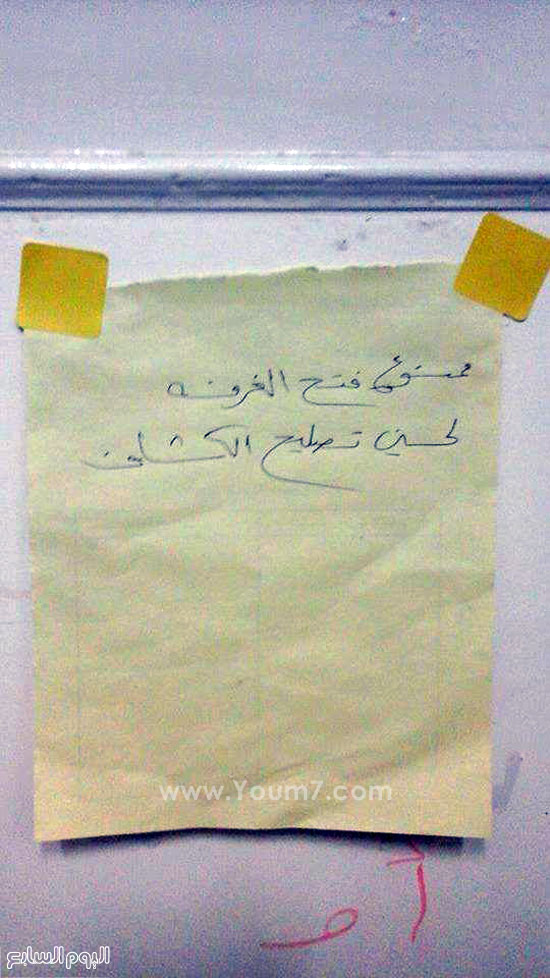 ممنوع فتح الغرفه
لحين تصليح الكشاف
www.Youm7.com
اليوم السابع